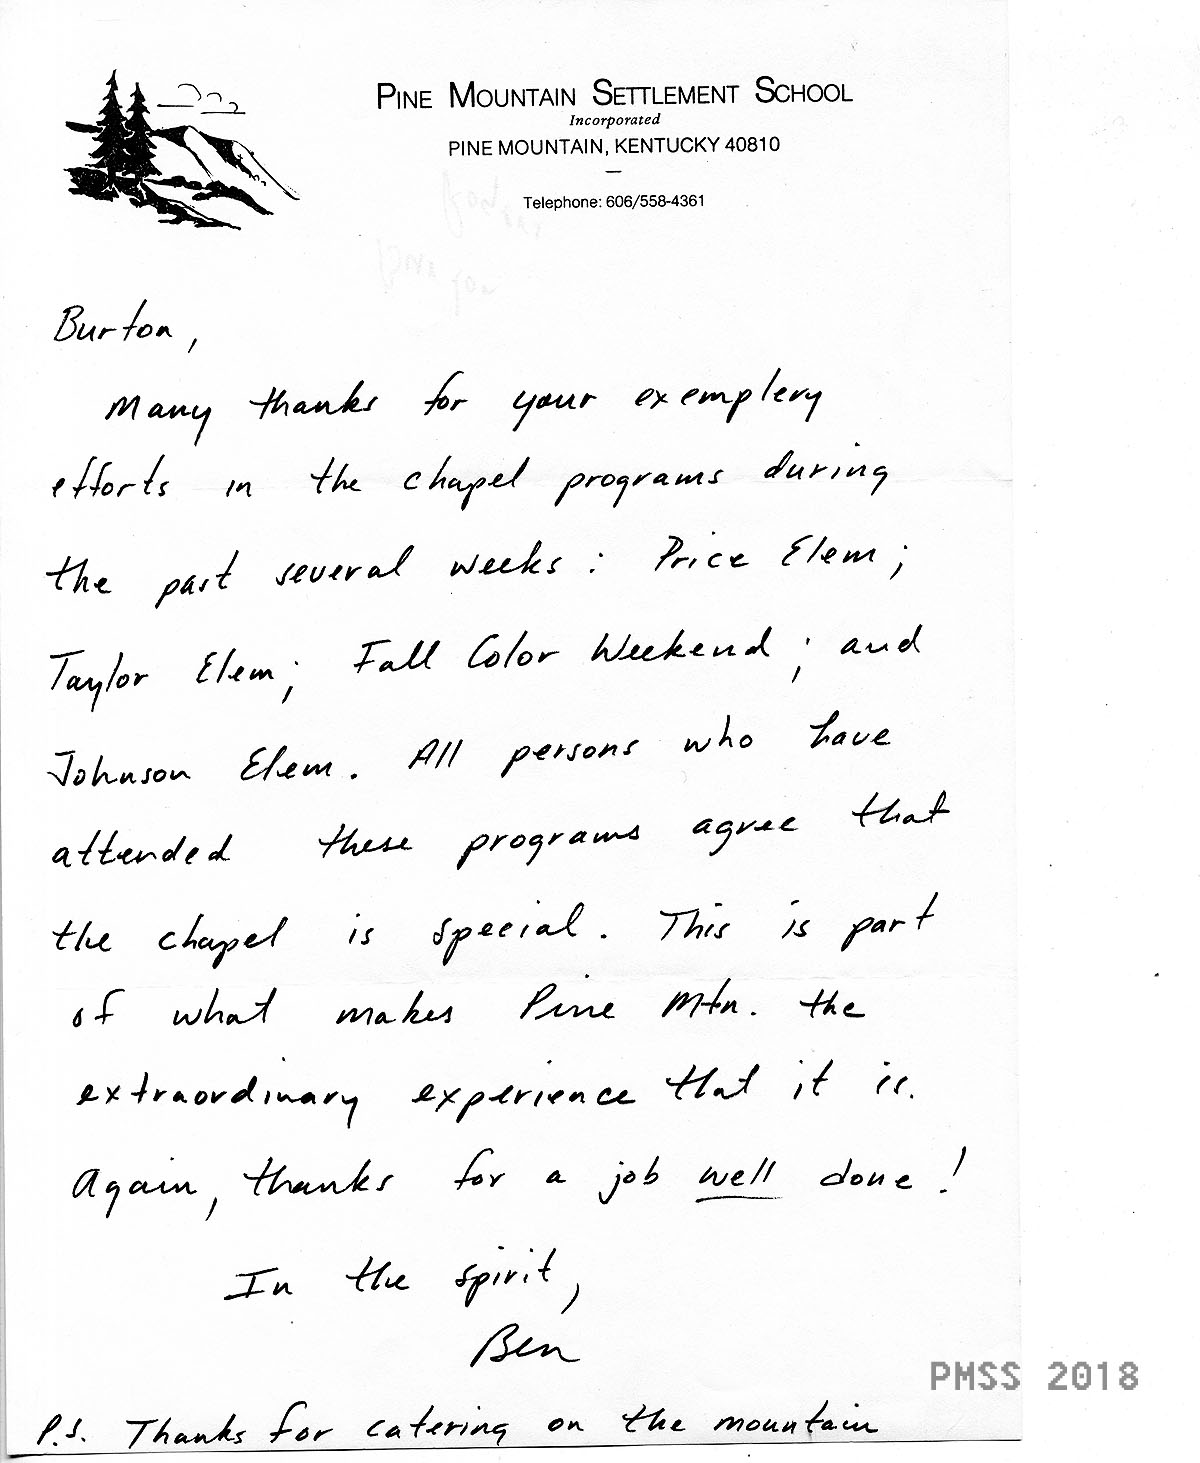 PINE MOUNTAIN SETTLEMENT SCHOOL
Incorporated
PINE MOUNTAIN, KENTUCKY 40810
Telephone: 606/558-4361
Burton,
Many thanks for your exemplery
efforts in the chapel programs during
the past several weeks: Price Elem;
Taylor Elem; Fall Color Weekend; and
Johnson Elem. All persons who have
attended these programs agree that
the chapel is special. This is part
of what makes Pine Mtn. the
extraordinary experience that it is.
Again, thanks for a job well done!
In the spirit,
Ben
PMSS 2018
P.S. Thanks for catering on the mountain